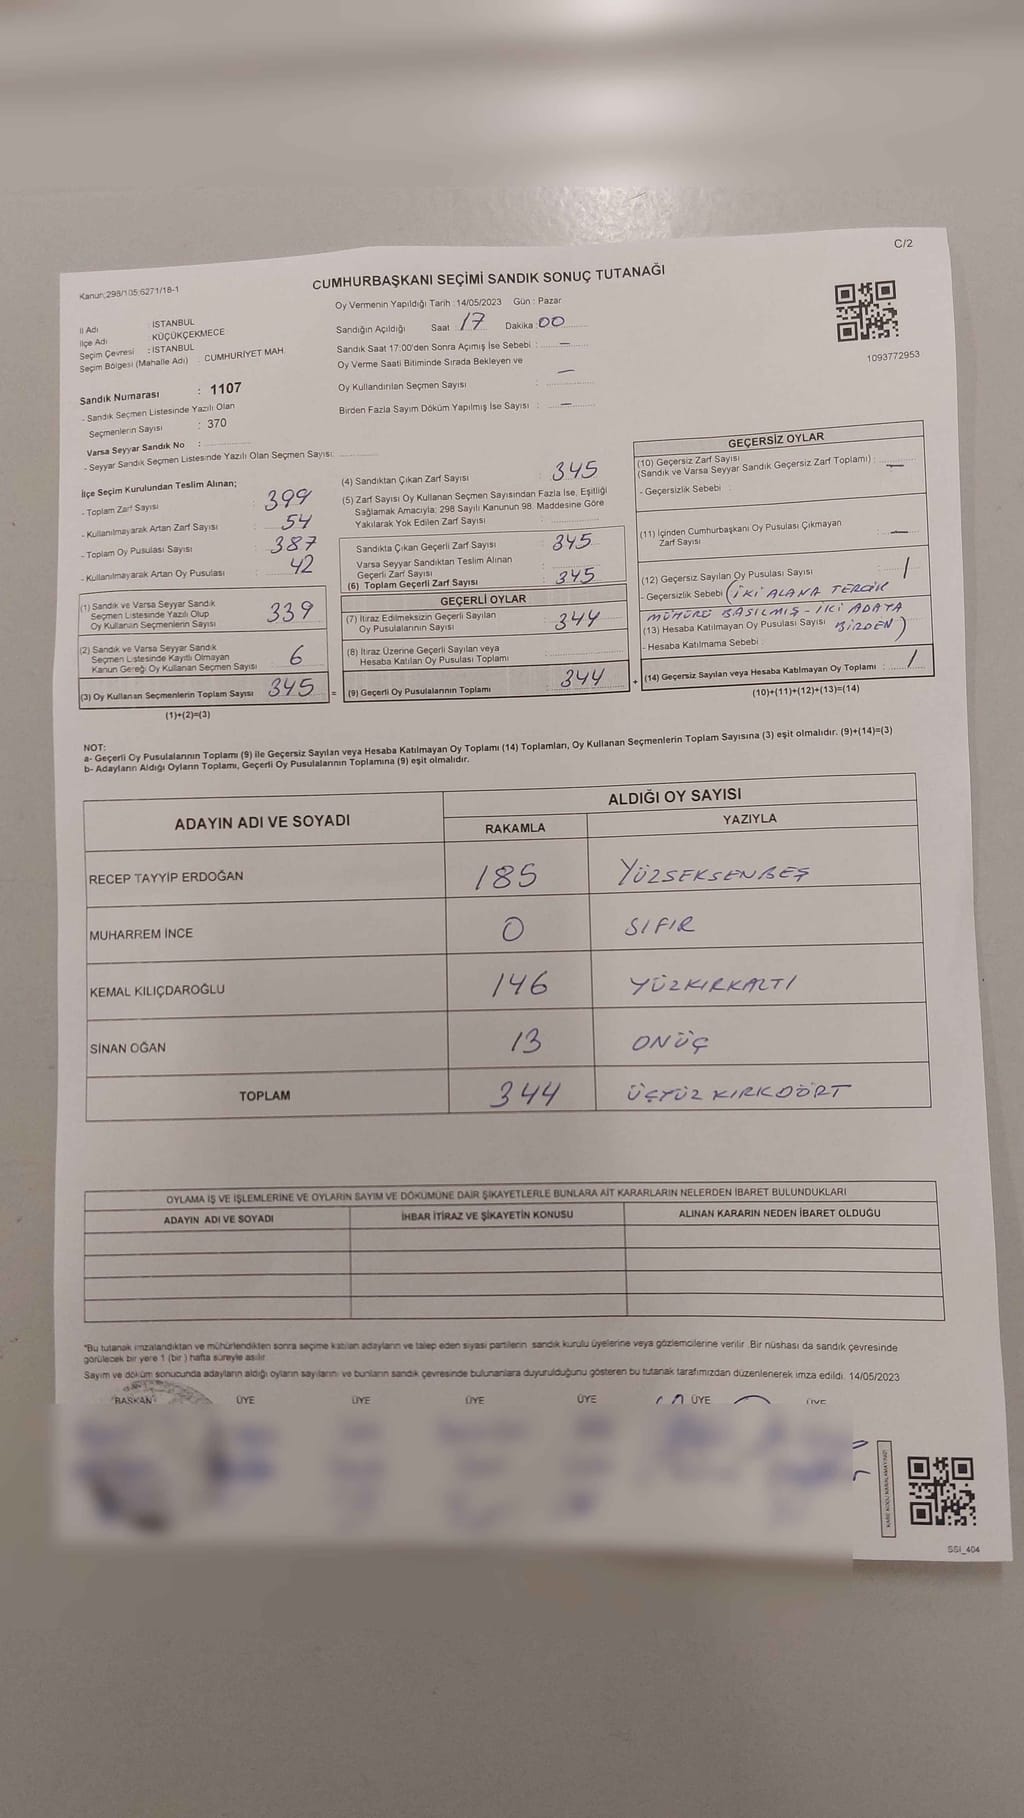 C/2
Kanun:298/105;6271/18-1
CUMHURBAŞKANI SEÇİMİ SANDIK SONUÇ TUTANAĞI
Oy Vermenin Yapıldığı Tarih :14/05/2023 Gün : Pazar
İl Adı : İSTANBUL
İlçe Adı : KÜÇÜKÇEKMECE
Seçim Çevresi : İSTANBUL
Seçim Bölgesi (Mahalle Adı) : CUMHURİYET MAH.
Sandığın Açıldığı Saat : 17 Dakika : 00
Sandık Saat 17:00'den Sonra Açımış İse Sebebi : —
Oy Verme Saati Bitiminde Sırada Bekleyen ve
Oy Kullandırılan Seçmen Sayısı : —
Birden Fazla Sayım Döküm Yapılmış İse Sayısı : —
1093772953
Sandık Numarası : 1107
- Sandık Seçmen Listesinde Yazılı Olan
Seçmenlerin Sayısı : 370
Varsa Seyyar Sandık No :
- Seyyar Sandık Seçmen Listesinde Yazılı Olan Seçmen Sayısı:
İlçe Seçim Kurulundan Teslim Alınan;
- Toplam Zarf Sayısı : 399
- Kullanılmayarak Artan Zarf Sayısı : 54
- Toplam Oy Pusulası Sayısı : 387
- Kullanılmayarak Artan Oy Pusulası : 42
(1) Sandık ve Varsa Seyyar Sandık
Seçmen Listesinde Yazılı Olup
Oy Kullanan Seçmenlerin Sayısı : 339
(2) Sandık ve Varsa Seyyar Sandık
Seçmen Listesinde Kayıtlı Olmayan
Kanun Gereği Oy Kullanan Seçmen Sayısı : 6
(3) Oy Kullanan Seçmenlerin Toplam Sayısı : 345 =
(1)+(2)=(3)
(4) Sandıktan Çıkan Zarf Sayısı : 345
(5) Zarf Sayısı Oy Kullanan Seçmen Sayısından Fazla İse, Eşitliği
Sağlamak Amacıyla; 298 Sayılı Kanunun 98. Maddesine Göre
Yakılarak Yok Edilen Zarf Sayısı :
Sandıkta Çıkan Geçerli Zarf Sayısı : 345
Varsa Seyyar Sandıktan Teslim Alınan
Geçerli Zarf Sayısı :
(6) Toplam Geçerli Zarf Sayısı : 345
GEÇERLİ OYLAR
(7) İtiraz Edilmeksizin Geçerli Sayılan
Oy Pusulalarının Sayısı : 344
(8) İtiraz Üzerine Geçerli Sayılan veya
Hesaba Katılan Oy Pusulası Toplamı :
(9) Geçerli Oy Pusulalarının Toplamı : 344 +
GEÇERSİZ OYLAR
(10) Geçersiz Zarf Sayısı
(Sandık ve Varsa Seyyar Sandık Geçersiz Zarf Toplamı) : —
- Geçersizlik Sebebi :
(11) İçinden Cumhurbaşkanı Oy Pusulası Çıkmayan
Zarf Sayısı : —
(12) Geçersiz Sayılan Oy Pusulası Sayısı : 1
- Geçersizlik Sebebi : (İKİ ALANA TERCİH
MÜHÜRÜ BASILMIŞ - İKİ ADAYA
(13) Hesaba Katılmayan Oy Pusulası Sayısı : BİRDEN)
- Hesaba Katılmama Sebebi :
(14) Geçersiz Sayılan veya Hesaba Katılmayan Oy Toplamı : 1
(10)+(11)+(12)+(13)=(14)
NOT:
a- Geçerli Oy Pusulalarının Toplamı (9) ile Geçersiz Sayılan veya Hesaba Katılmayan Oy Toplamı (14) Toplamları, Oy Kullanan Seçmenlerin Toplam Sayısına (3) eşit olmalıdır. (9)+(14)=(3)
b- Adayların Aldığı Oyların Toplamı, Geçerli Oy Pusulalarının Toplamına (9) eşit olmalıdır.
ADAYIN ADI VE SOYADI ALDIĞI OY SAYISI
RAKAMLA YAZIYLA
RECEP TAYYİP ERDOĞAN 185 YÜZSEKSENBEŞ
MUHARREM İNCE 0 SIFIR
KEMAL KILIÇDAROĞLU 146 YÜZKIRKALTI
SİNAN OĞAN 13 ONÜÇ
TOPLAM 344 ÜÇYÜZ KIRKDÖRT
OYLAMA İŞ VE İŞLEMLERİNE VE OYLARIN SAYIM VE DÖKÜMÜNE DAİR ŞİKAYETLERLE BUNLARA AİT KARARLARIN NELERDEN İBARET BULUNDUKLARI
ADAYIN ADI VE SOYADI İHBAR İTİRAZ VE ŞİKAYETİN KONUSU ALINAN KARARIN NEDEN İBARET OLDUĞU
*Bu tutanak imzalandıktan ve mühürlendikten sonra seçime katılan adayların ve talep eden siyasi partilerin sandık kurulu üyelerine veya gözlemcilerine verilir. Bir nüshası da sandık çevresinde
görülecek bir yere 1 (bir ) hafta süreyle asılır.
Sayım ve döküm sonucunda adayların aldığı oyların sayılarını ve bunların sandık çevresinde bulunanlara duyurulduğunu gösteren bu tutanak tarafımızdan düzenlenerek imza edildi. 14/05/2023
BAŞKAN ÜYE ÜYE ÜYE ÜYE ÜYE ÜYE
SSI_404